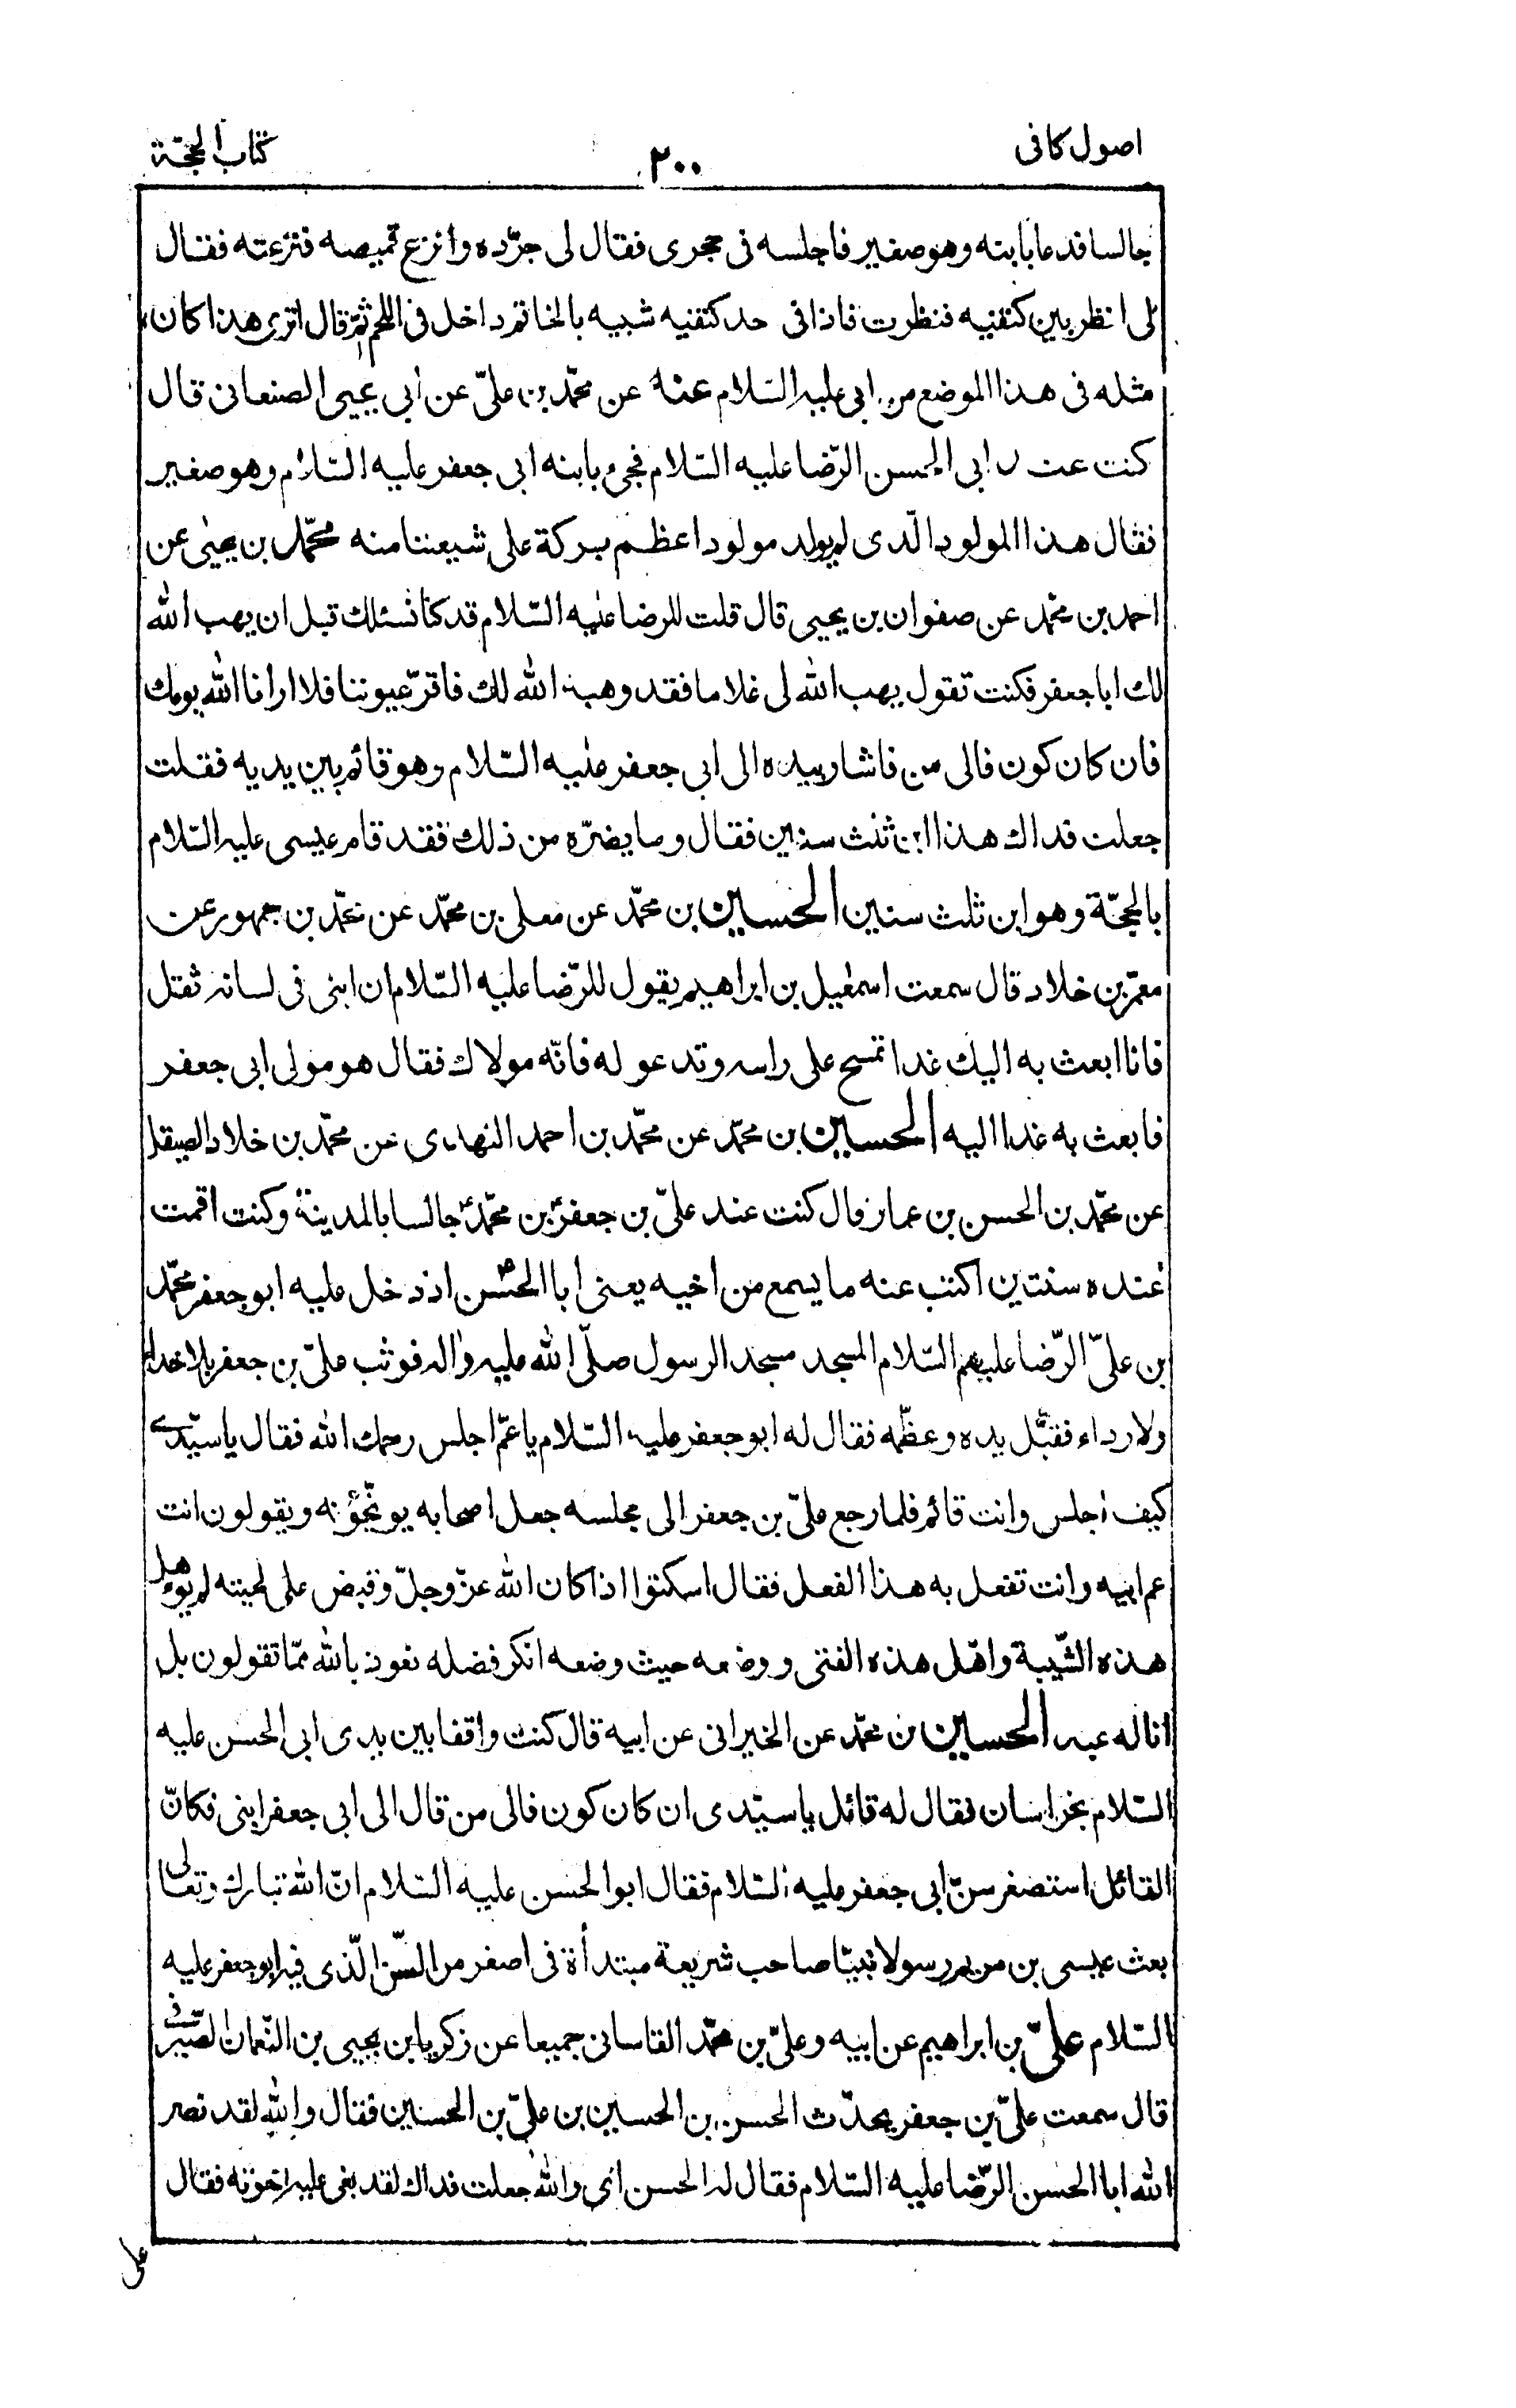 اصول كافى
٢٠٠
كتاب الحجّة
جالسا فدعا بابنه وهو صغير فاجلسه فى حجرى فقال لى جرّده وانزع قميصه فنزعته فقال
لى انظر بين كتفيه فنظرت فاذا فى حد كتفيه شبيه بالخاتم داخل فى اللحم ثمّ قال اترى هذا كان
مثله فى هذا الموضع من ابى عليه السّلام عنه عن محمّد بن علىّ عن أبى يحيى الصنعانى قال
كنت عند ابى الحسن الرّضا عليه السّلام فجئ بابنه ابى جعفر عليه السّلام وهو صغير
فقال هذا المولود الّذى لم يولد مولود اعظم بركة على شيعتنا منه محمّد بن يحيى عن
احمد بن محمّد عن صفوان بن يحيى قال قلت للرضا عليه السّلام قد كنا نسئلك قبل ان يهب الله
لك ابا جعفر فكنت تقول يهب الله لى غلاما فقد وهبه الله لك فاقرّ عيوننا فلا ارانا الله يومك
فان كان كون فالى من فاشار بيده الى ابى جعفر عليه السّلام وهو قائم بين يديه فقلت
جعلت فداك هذا ابن ثلث سنين فقال وما يضرّه من ذلك فقد قام عيسى عليه السّلام
بالحجّة وهو ابن ثلث سنين الحسين بن محمّد عن معلى بن محمّد عن محمّد بن جمهور عن
معمّر بن خلاد قال سمعت اسمعيل بن ابراهيم يقول للرّضا عليه السّلام ان ابنى فى لسانه ثقل
فانا ابعث به اليك غدا تمسح على راسه وتدعو له فانّه مولاك فقال هو مولى ابى جعفر
فابعث به غدا اليه الحسين بن محمّد عن محمّد بن احمد النهدى عن محمّد بن خلاد الصيقل
عن محمّد بن الحسن بن عمار قال كنت عند علىّ بن جعفر بن محمّد جالسا بالمدينة وكنت اقمت
عنده سنتين اكتب عنه ما يسمع من اخيه يعنى ابا الحسن اذ دخل عليه ابو جعفر محمّد
بن علىّ الرّضا عليهم السّلام المسجد مسجد الرسول صلّى الله عليه واله فوثب علىّ بن جعفر بلا حذاء
ولا رداء فقبّل يده وعظّمه فقال له ابو جعفر عليه السّلام يا عمّ اجلس رحمك الله فقال يا سيّدى
كيف اجلس وانت قائم فلما رجع علىّ بن جعفر الى مجلسه جعل اصحابه يوبّخونه ويقولون انت
عم ابيه وانت تفعل به هذا الفعل فقال اسكتوا اذا كان الله عزّ وجلّ وقبض على لحيته لم يؤهل
هذه الشّيبة واهّل هذه الفتى ووضعه حيث وضعه انكر فضله نعوذ بالله ممّا تقولون بل
انا له عبد الحسين بن محمّد عن الخيرانى عن ابيه قال كنت واقفا بين يدى ابى الحسن عليه
السّلام بخراسان فقال له قائل يا سيّدى ان كان كون فالى من قال الى ابى جعفر ابنى فكانّ
القائل استصغر سنّ ابى جعفر عليه السّلام فقال ابو الحسن عليه السّلام انّ الله تبارك وتعالى
بعث عيسى بن مريم رسولا نبيّا صاحب شريعة مبتدأة فى اصغر من السّن الّذى فيه ابو جعفر عليه
السّلام علىّ بن ابراهيم عن ابيه وعلىّ بن محمّد القاسانى جميعا عن زكريا بن يحيى بن النّعمان الصّيرفى
قال سمعت علىّ بن جعفر يحدّث الحسن بن الحسين بن علىّ بن الحسين فقال والله لقد نصر
الله ابا الحسن الرّضا عليه السّلام فقال له الحسن اى والله جعلت فداك لقد بغى عليه اخوته فقال
على